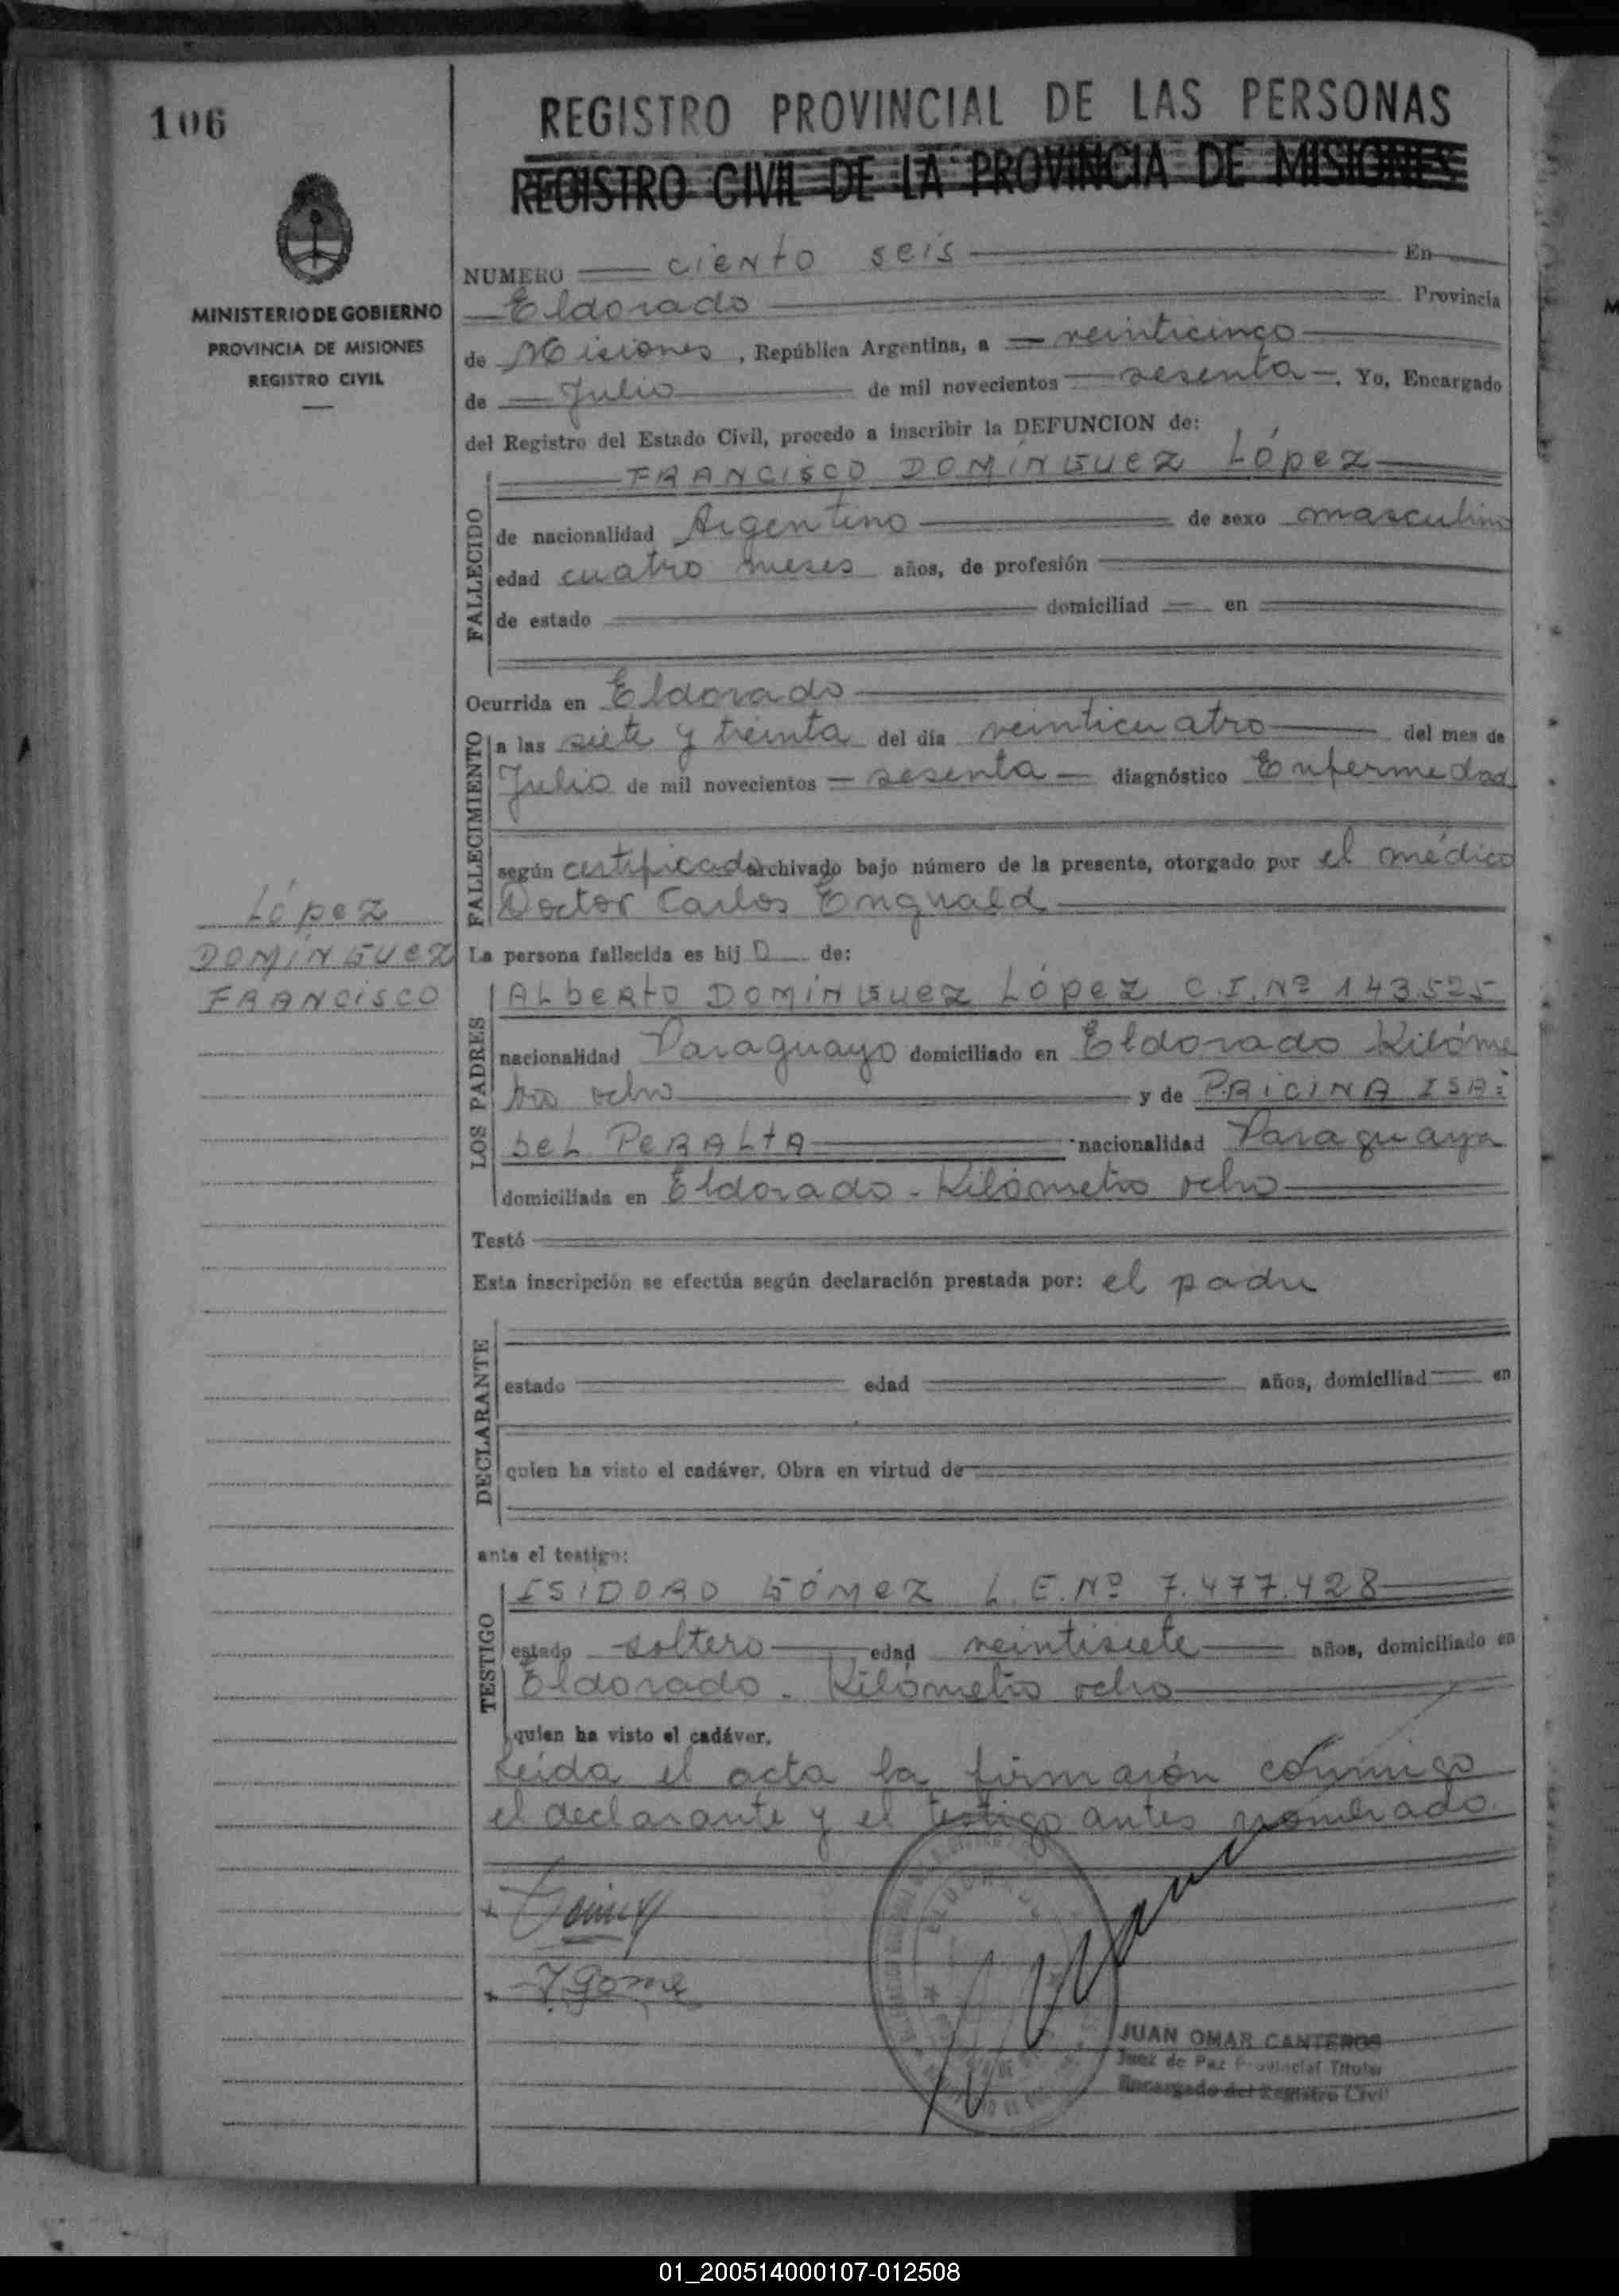 106
REGISTRO PROVINCIAL DE LAS PERSONAS
REGISTRO CIVIL DE LA PROVINCIA DE MISIONES
MINISTERIO DE GOBIERNO
PROVINCIA DE MISIONES
REGISTRO CIVIL
NUMERO ciento seis En
Eldorado Provincia
de Misiones, República Argentina, a veinticinco
de Julio de mil novecientos sesenta. Yo, Encargado
del Registro del Estado Civil, procedo a inscribir la DEFUNCION de:
FRANCISCO DOMÍNGUEZ López
FALLECIDO
de nacionalidad Argentino de sexo masculino
edad cuatro meses años, de profesión
de estado domiciliad en
Ocurrida en Eldorado
FALLECIMIENTO
a las siete y treinta del día veinticuatro del mes de
Julio de mil novecientos sesenta diagnóstico Enfermedad
según certificado archivado bajo número de la presente, otorgado por el médico
Doctor Carlos
López
DOMÍNGUEZ
FRANCISCO
La persona fallecida es hij o de:
LOS PADRES
ALbERto DOMÍNGUEZ López C.I. Nº 143.525
nacionalidad Paraguayo domiciliado en Eldorado Kilóme
tro ocho y de PRICINA ISA:
bEL PERALtA nacionalidad Paraguaya
domiciliada en Eldorado - Kilómetro ocho
Testó
Esta inscripción se efectúa según declaración prestada por: el padre
DECLARANTE
estado edad años, domiciliad en
quien ha visto el cadáver. Obra en virtud de
ante el testigo:
TESTIGO
ISIDORO GÓMEZ L.E. Nº 7.477.428
estado soltero edad veintisiete años, domiciliado en
Eldorado - Kilómetro ocho
quien ha visto el cadáver.
Leida el acta la firmarón conmigo
el declarante y el testigo antes nombrado.
JUAN OMAR CANTEROS
Juez de Paz Provincial Titular
Encargado del Registro Civil
01_200514000107-012508